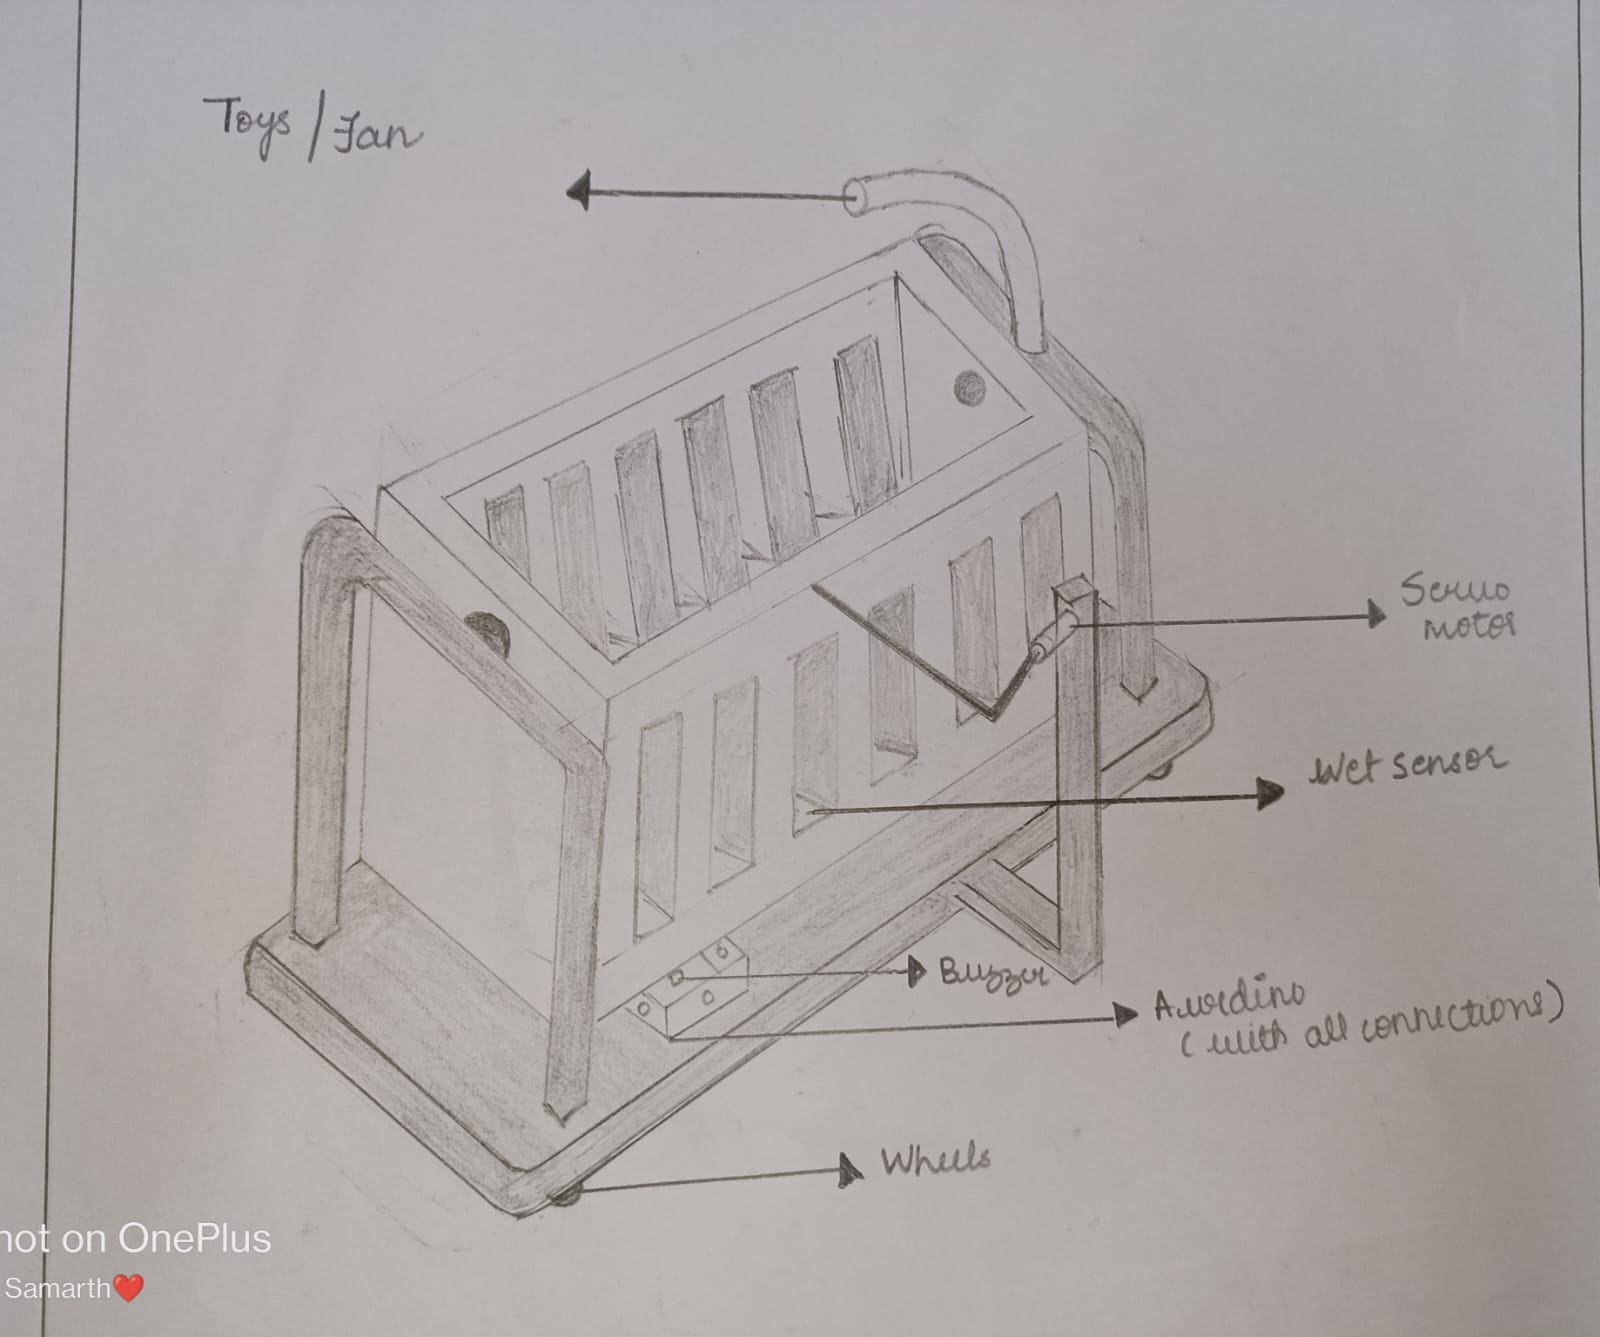 Toys / Fan
Servo
motor
Wet sensor
Buzzer
Aurdino
( with all connections)
Wheels
hot on OnePlus
Samarth❤️